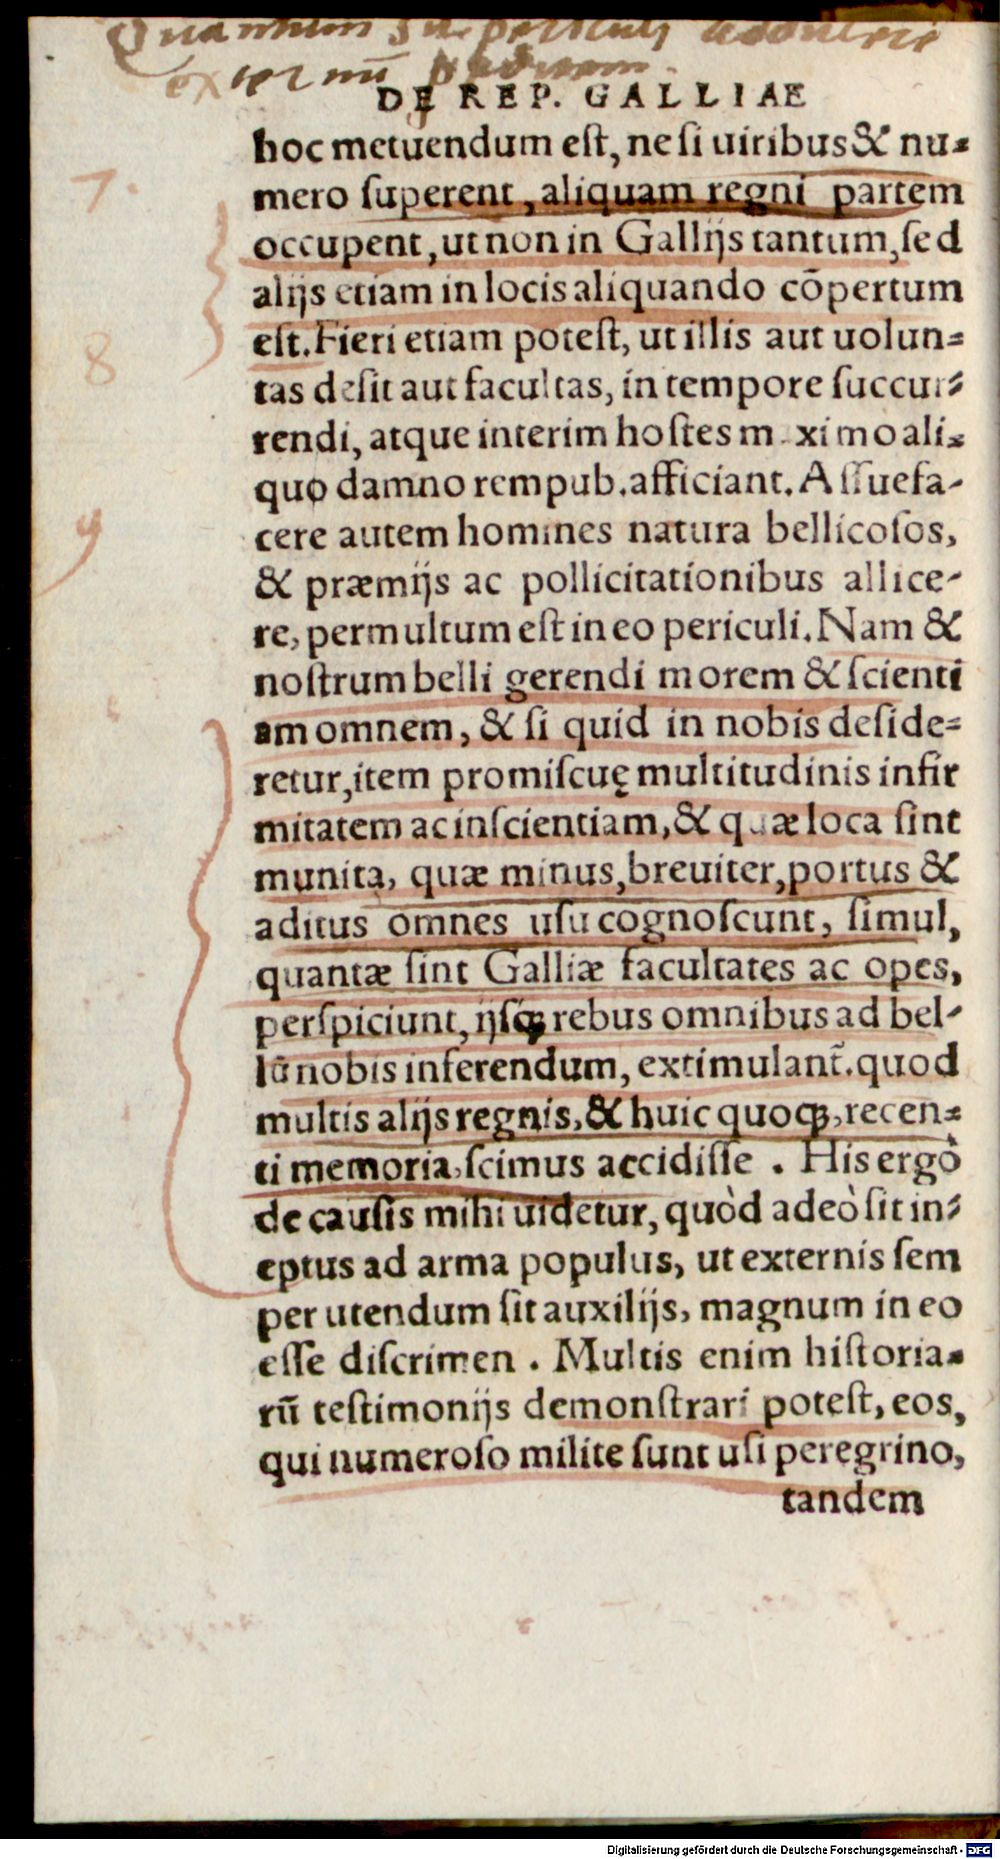 Quantum sit periculi advenire
exter nū
DE REP. GALLIAE
hoc metuendum eſt, ne ſi uiribus & nu-
mero ſuperent, aliquam regni partem
occupent, ut non in Gallijs tantum, ſed
alijs etiam in locis aliquando cōpertum
eſt. Fieri etiam poteſt, ut illis aut uolun-
tas deſit aut facultas, in tempore ſuccur-
rendi, atque interim hoſtes m xi mo ali-
quo damno rempub. afficiant. Aſſuefa-
cere autem homines natura bellicoſos,
& præmijs ac pollicitationibus allice-
re, permultum eſt in eo periculi. Nam &
noſtrum belli gerendi morem & ſcienti
am omnem, & ſi quid in nobis deſide-
retur, item promiſcuę multitudinis infir
mitatem ac inſcientiam, & quæ loca ſint
munita, quæ minus, breuiter, portus &
aditus omnes uſu cognoſcunt, ſimul,
quantæ ſint Galliæ facultates ac opes,
perſpiciunt, ijſq; rebus omnibus ad bel-
lū nobis inferendum, extimulant̃. quod
multis alijs regnis, & huic quoq;, recen-
ti memoria, ſcimus accidiſſe. His ergò
de cauſis mihi uidetur, quòd adeò ſit in-
eptus ad arma populus, ut externis ſem
per utendum ſit auxilijs, magnum in eo
eſſe diſcrimen. Multis enim hiſtoria-
rū teſtimonijs demonſtrari poteſt, eos,
qui numeroſo milite ſunt uſi peregrino,
tandem
7.
8
9
Digitalisierung gefördert durch die Deutsche Forschungsgemeinschaft - DFG